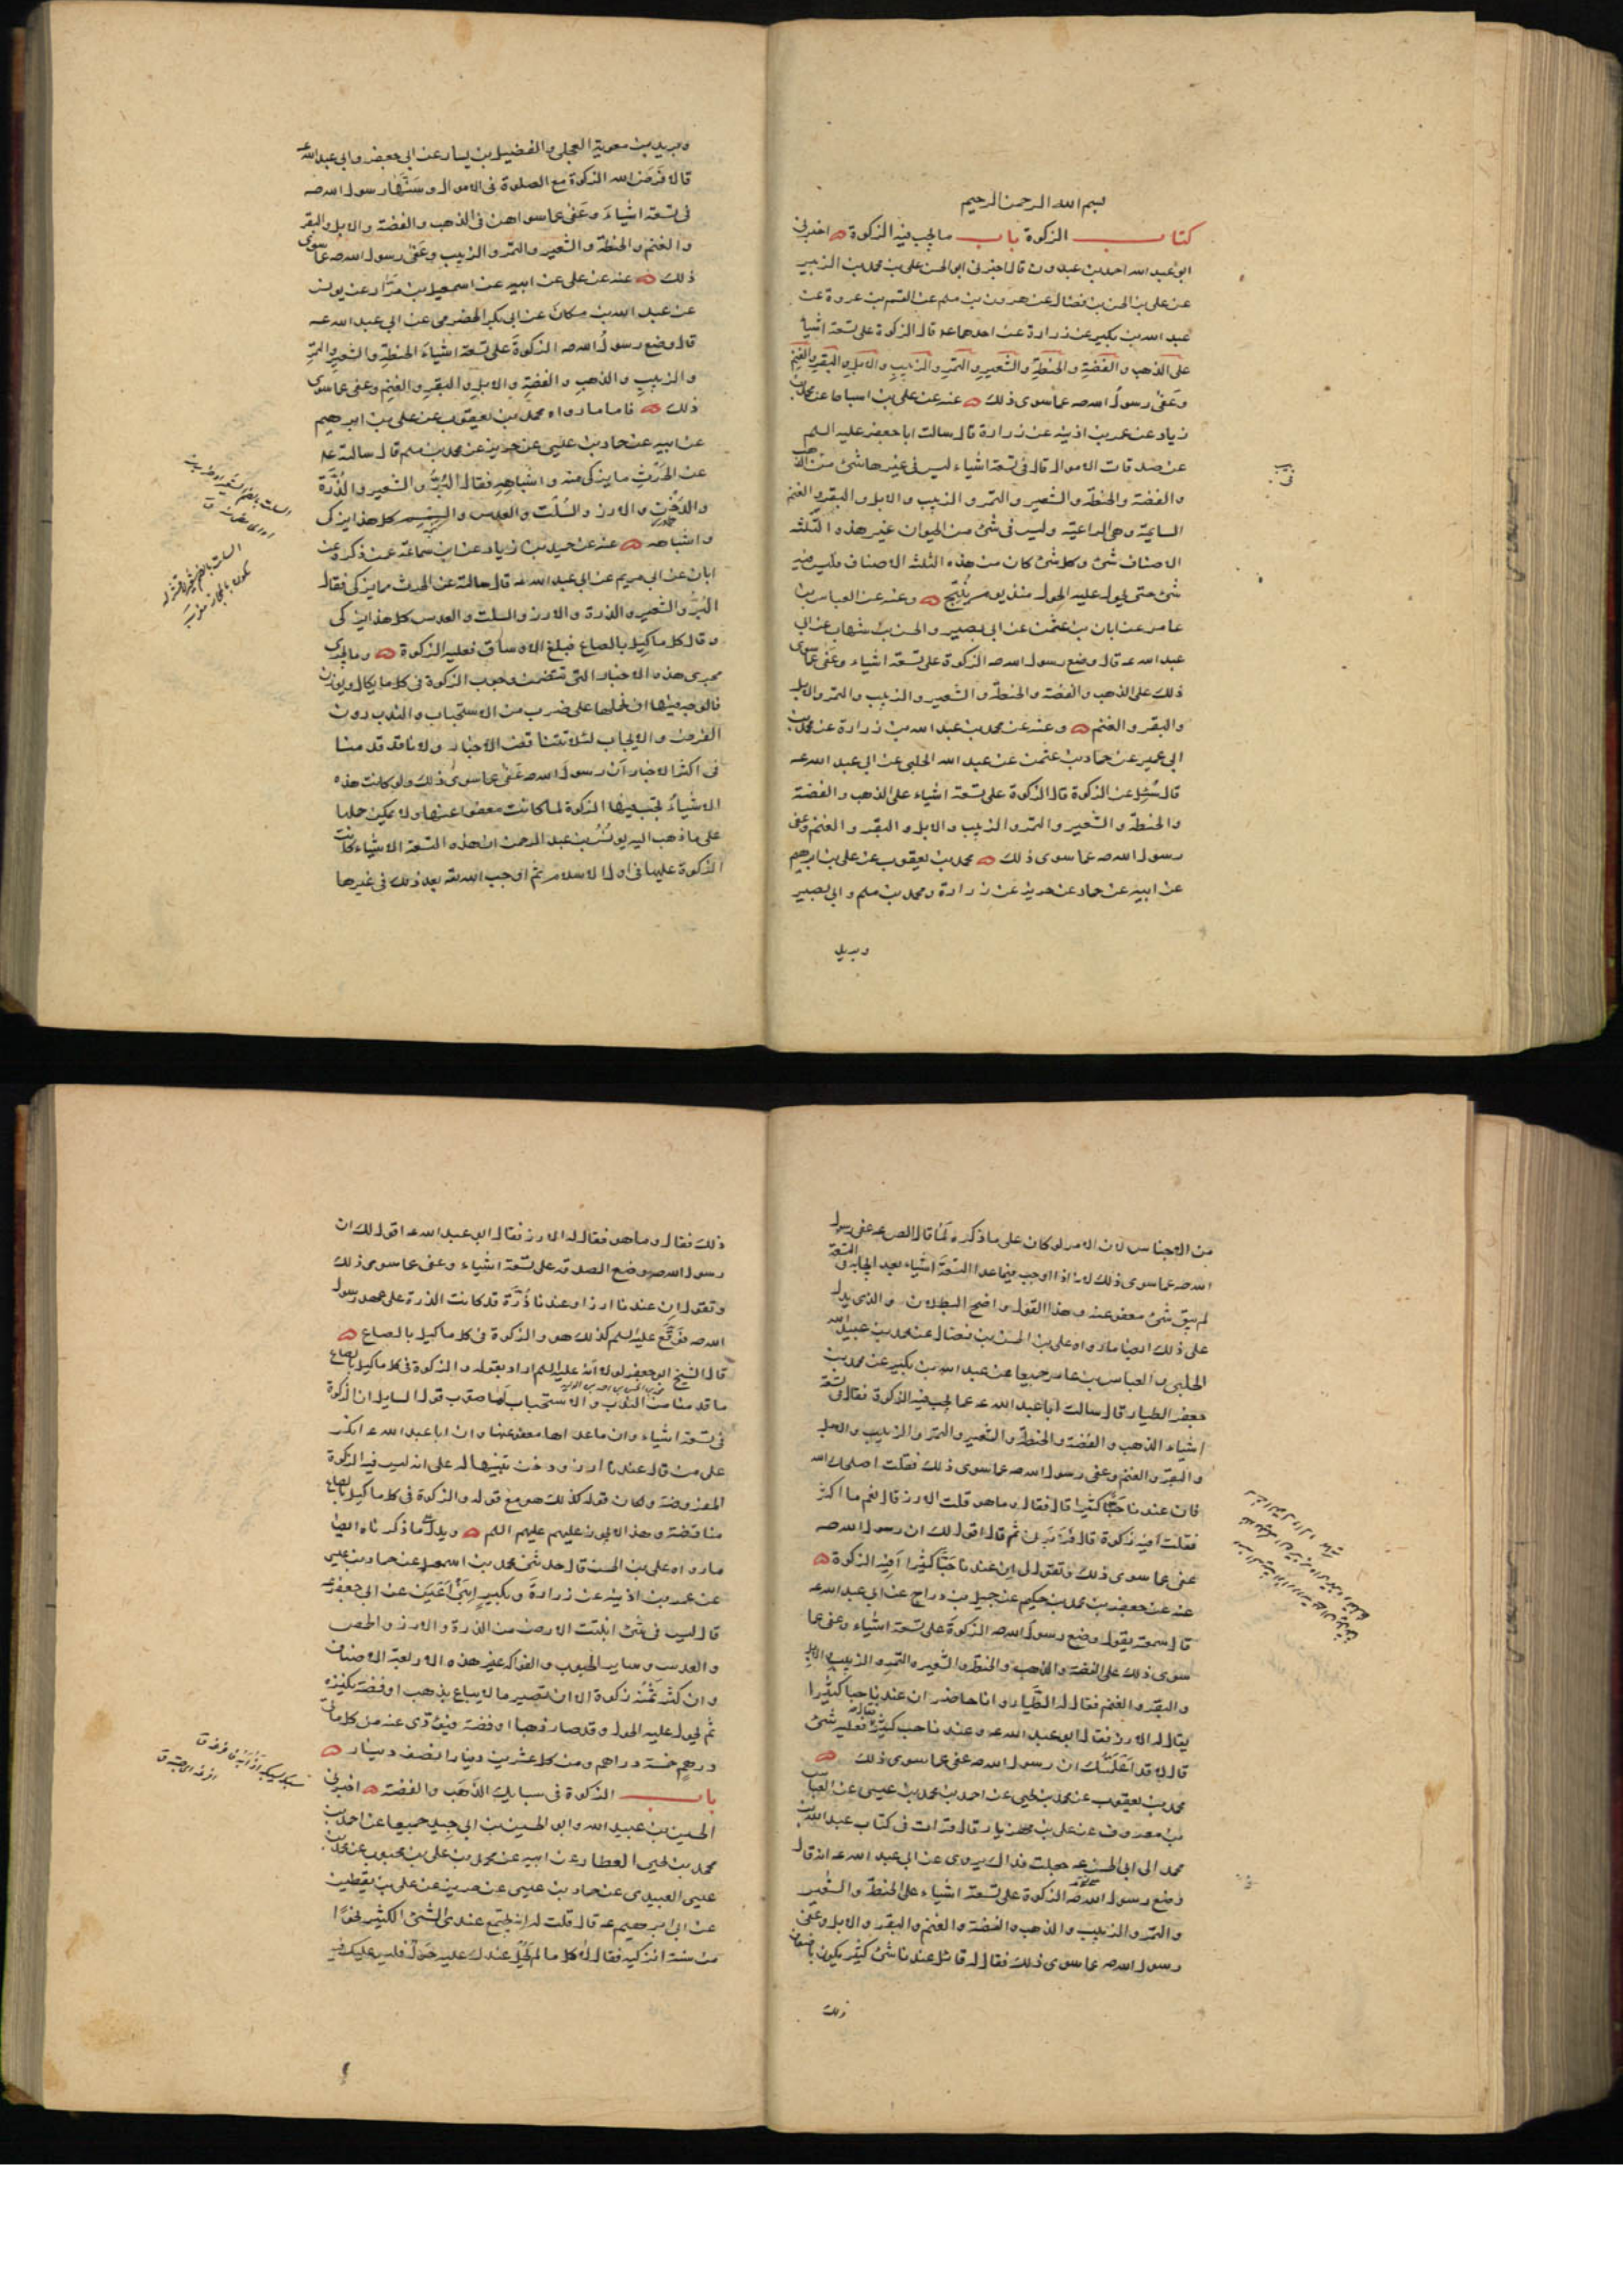 بسم الله الرحمن الرحيم
كتاب الزكوة باب ما يجب فيه الزكوة اخبرني
ابو عبد الله احمد بن عبدون قال اخبرني ابو الحسن علي بن محمد بن الزبير
عن علي بن الحسن بن فضال عن هرون بن مسلم عن القسم بن عروة عن
عبد الله بن بكير عن زرارة عن احدهما عه قال الزكوة على تسعة اشياء
على الذهب والفضة والحنطة والشعير والتمر والزبيب والابل والبقر والغنم
وعفى رسول الله صه عما سوى ذلك عنه عن علي بن اسباط عن محمد بن
زياد عن عمر بن اذينة عن زرارة قال سالت ابا جعفر عليه السلم
عن صدقات الاموال قال في تسعة اشياء ليس في غيرها شئ من الذهب
والفضة والحنطة والشعير والتمر والزبيب والابل والبقر والغنم
السايمة وهي الراعية وليس في شئ من الحيوان غير هذه الثلثة
الاصناف شئ وكل شئ كان من هذه الثلثة الاصناف فليس فيه
شئ حتى يحول عليه الحول منذ يوم ينتج وعنه عن العباس بن
عامر عن ابان بن عثمن عن ابي بصير والحسن بن شهاب عن ابي
عبد الله عه قال وضع رسول الله صه الزكوة على تسعة اشياء وعفى عما سوى
ذلك على الذهب والفضة والحنطة والشعير والزبيب والتمر والابل
والبقر والغنم وعنه عن محمد بن عبد الله بن زرارة عن محمد بن
ابي عمير عن حماد بن عثمن عن عبد الله الحلبي عن ابي عبد الله عه
قال سئل عن الزكوة قال الزكوة على تسعة اشياء على الذهب والفضة
والحنطة والشعير والتمر والزبيب والابل والبقر والغنم وعفى
رسول الله صه عما سوى ذلك محمد بن يعقوب عن علي بن ابرهيم
عن ابيه عن حماد عن حريز عن زرارة ومحمد بن مسلم وابي بصير
وبريد
وبريد بن معوية العجلي والفضيل بن يسار عن ابي جعفر وابي عبد الله عه
قالا فرض الله الزكوة مع الصلوة في الاموال وسنها رسول الله صه
في تسعة اشياء وعفى عما سواهن في الذهب والفضة والابل والبقر
والغنم والحنطة والشعير والتمر والزبيب وعفى رسول الله صه عما سوى
ذلك عنه عن علي عن ابيه عن اسمعيل بن مرار عن يونس
عن عبد الله بن مسكان عن ابي بكر الحضرمي عن ابي عبد الله عه
قال وضع رسول الله صه الزكوة على تسعة اشياء الحنطة والشعير والتمر
والزبيب والذهب والفضة والابل والبقر والغنم وعفى عما سوى
ذلك فاما ما رواه محمد بن يعقوب عن علي بن ابرهيم
عن ابيه عن حماد بن عيسى عن حريز عن محمد بن مسلم قال سالته عه
عن الحرث ما يزكى منه واشباهه فقال البر والشعير والذرة
والدخن والارز والسلت والعدس والسمسم كل هذا يزكى
واشباهه عنه عن حميد بن زياد عن ابن سماعة عمن ذكره عن
ابان عن ابي مريم عن ابي عبد الله عه قال سالته عن الحرث مما يزكى فقال
البر والشعير والذرة والارز والسلت والعدس كل هذا يزكى
وقال كل ما كيل بالصاع فبلغ الاوساق فعليه الزكوة وما يجري
مجرى هذه الاخبار التي تتضمن وجوب الزكوة في كل ما يكال ويوزن
فالوجه فيها ان نحملها على ضرب من الاستحباب والندب دون
الفرض والايجاب لئلا تتناقض الاخبار ولانا قد قدمنا
في اكثر الاخبار ان رسول الله صه عفى عما سوى ذلك ولو كانت هذه
الاشياء تجب فيها الزكوة لما كانت معفوا عنها ولا يمكن حملها
على ما ذهب اليه يونس بن عبد الرحمن ان هذه التسعة الاشياء كانت
الزكوة عليها في اول الاسلام ثم اوجب الله تعه بعد ذلك في غيرها
من الاجناس لان الامر لو كان على ما ذكره لما قال الص عه عفى رسول
الله صه عما سوى ذلك لانه اذا اوجب فيما عدا التسعة اشياء بعد ايجابه في التسعة
لم يبق شئ معفو عنه وهذا القول واضح البطلان والذي يدل
على ذلك ايضا ما رواه علي بن الحسن بن فضال عن محمد بن عبيد الله
الحلبي والعباس بن عامر جميعا عن عبد الله بن بكير عن محمد بن
جعفر الطيار قال سالت ابا عبد الله عه عما يجب فيه الزكوة فقال في تسعة
اشياء الذهب والفضة والحنطة والشعير والتمر والزبيب والابل
والبقر والغنم وعفى رسول الله صه عما سوى ذلك فقلت اصلحك الله
فان عندنا حبا كثيرا قال فقال وما هو قلت الارز قال نعم ما اكثر
فقلت افيه زكوة قال فزبرني ثم قال اقول لك ان رسول الله صه
عفى عما سوى ذلك وتقول لي ان عندنا حبا كثيرا افيه الزكوة
عنه عن جعفر بن محمد بن حكيم عن جميل بن دراج عن ابي عبد الله عه
قال سمعته يقول وضع رسول الله صه الزكوة على تسعة اشياء وعفى عما
سوى ذلك على الفضة والذهب والحنطة والشعير والتمر والزبيب والابل
والبقر والغنم فقال له الطيار وانا حاضر ان عندنا حبا كثيرا
يقال له الارز فقال ابو عبد الله عه وعندنا حب كثير قال فعليه شئ
قال لا قد اعلمتك ان رسول الله صه عفى عما سوى ذلك
محمد بن يعقوب عن محمد بن يحيى عن احمد بن محمد بن عيسى عن العباس
بن معروف عن علي بن مهزيار قال قرات في كتاب عبد الله بن
محمد الى ابي الحسن عه جعلت فداك يروى عن ابي عبد الله عه انه قال
وضع رسول الله صه الزكوة على تسعة اشياء على الحنطة والشعير
والتمر والزبيب والذهب والفضة والغنم والبقر والابل وعفى
رسول الله صه عما سوى ذلك فقال له قائل عندنا شئ كثير يكون باضعاف
ذلك
ذلك فقال وما هو فقال له الارز فقال ابو عبد الله عه اقول لك ان
رسول الله صه وضع الصدقة على تسعة اشياء وعفى عما سوى ذلك
وتقول ان عندنا ارزا وعندنا ذرة قد كانت الذرة على عهد رسول
الله صه فوقع عليه السلم كذلك هو والزكوة في كل ما كيل بالصاع
قال الشيخ ابو جعفر لولا انه عليه السلم اراد بقوله والزكوة في كل ما كيل بالصاع
ما قدمنا من الندب والاستحباب لما صوب قول السايل ان الزكوة
في تسعة اشياء وان ما عداها معفو عنها وان ابا عبد الله عه انكر
على من قال عندنا ارز ودخن تنبيها له على انه ليس فيه الزكوة
المفروضة ولكان قوله كذلك هو مع قوله والزكوة في كل ما كيل بالصاع
مناقضة وهذا لا يجوز عليهم عليهم السلم ويدل على ما ذكرناه ايضا
ما رواه علي بن الحسن قال حدثني محمد بن اسمعيل عن حماد بن عيسى
عن عمر بن اذينة عن زرارة وبكير ابني اعين عن ابي جعفر عه
قال ليس في شئ انبتت الارض من الذرة والارز والحمص
والعدس وساير الحبوب والفواكه غير هذه الاربعة الاصناف
وان كثر ثمنه زكوة الا ان تصير مالا يباع بذهب او فضة تكنزه
ثم يحول عليه الحول وقد صار ذهبا او فضة فيؤدى عنه من كل مائتي
درهم خمسة دراهم ومن كل عشرين دينارا نصف دينار
باب الزكوة في سبايك الذهب والفضة اخبرني
الحسين بن عبيد الله وابو الحسين بن ابي جيد جميعا عن احمد بن
محمد بن يحيى العطار عن ابيه عن محمد بن علي بن محبوب عن محمد بن
عيسى العبيدي عن حماد بن عيسى عن حريز عن علي بن يقطين
عن ابي ابرهيم عه قال قلت له انه يجتمع عندي الشئ الكثير نحوا
من سنة انزكيه فقال لا كل ما لم يحل عندك عليه حول فليس عليك فيه